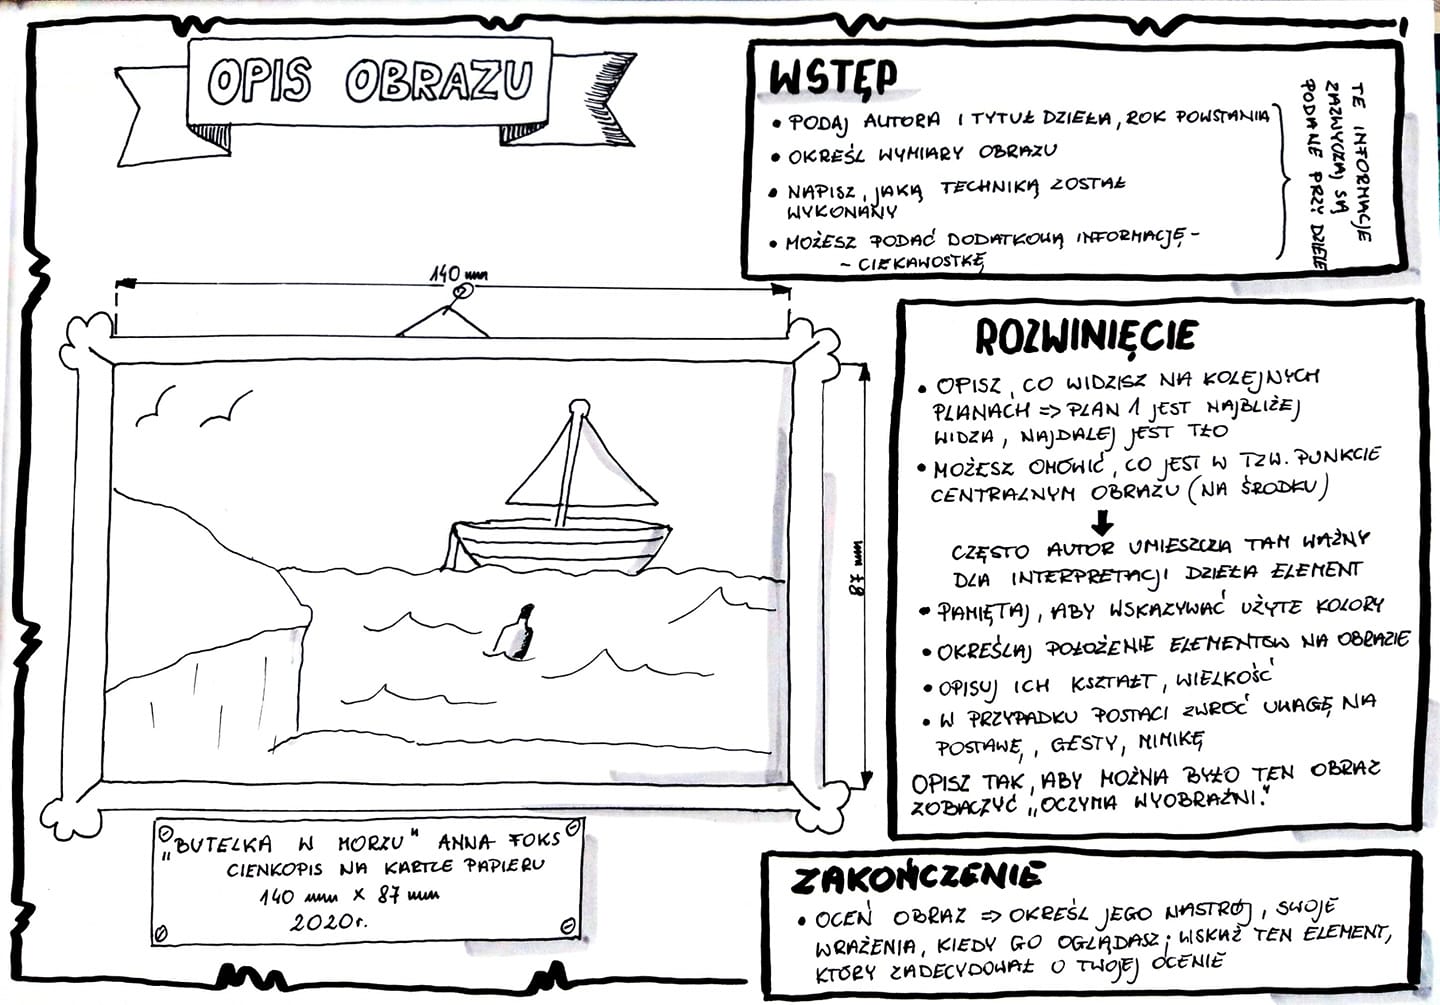 OPIS OBRAZU
WSTĘP
• PODAJ AUTORA I TYTUŁ DZIEŁA, ROK POWSTANIA
• OKREŚL WYMIARY OBRAZU
• NAPISZ, JAKĄ TECHNIKĄ ZOSTAŁ
WYKONANY
• MOŻESZ PODAĆ DODATKOWĄ INFORMACJĘ -
- CIEKAWOSTKĘ
TE INFORMACJE
ZAZWYCZAJ SĄ
PODANE PRZY DZIELE
140 mm
87 mm
"BUTELKA W MORZU" ANNA FOKS
CIENKOPIS NA KARTCE PAPIERU
140 mm X 87 mm
2020r.
ROZWINIĘCIE
• OPISZ, CO WIDZISZ NA KOLEJNYCH
PLANACH => PLAN 1 JEST NAJBLIŻEJ
WIDZA, NAJDALEJ JEST TŁO
• MOŻESZ OMÓWIĆ, CO JEST W TZW. PUNKCIE
CENTRALNYM OBRAZU (NA ŚRODKU)
CZĘSTO AUTOR UMIESZCZA TAM WAŻNY
DLA INTERPRETACJI DZIEŁA ELEMENT
• PAMIĘTAJ, ABY WSKAZYWAĆ UŻYTE KOLORY
• OKREŚLAJ POŁOŻENIE ELEMENTÓW NA OBRAZIE
• OPISUJ ICH KSZTAŁT, WIELKOŚĆ
• W PRZYPADKU POSTACI ZWRÓĆ UWAGĘ NA
POSTAWĘ, GESTY, MIMIKĘ
OPISZ TAK, ABY MOŻNA BYŁO TEN OBRAZ
ZOBACZYĆ „OCZYMA WYOBRAŹNI."
ZAKOŃCZENIE
• OCEŃ OBRAZ => OKREŚL JEGO NASTRÓJ, SWOJE
WRAŻENIA, KIEDY GO OGLĄDASZ; WSKAŻ TEN ELEMENT,
KTÓRY ZADECYDOWAŁ O TWOJEJ OCENIE